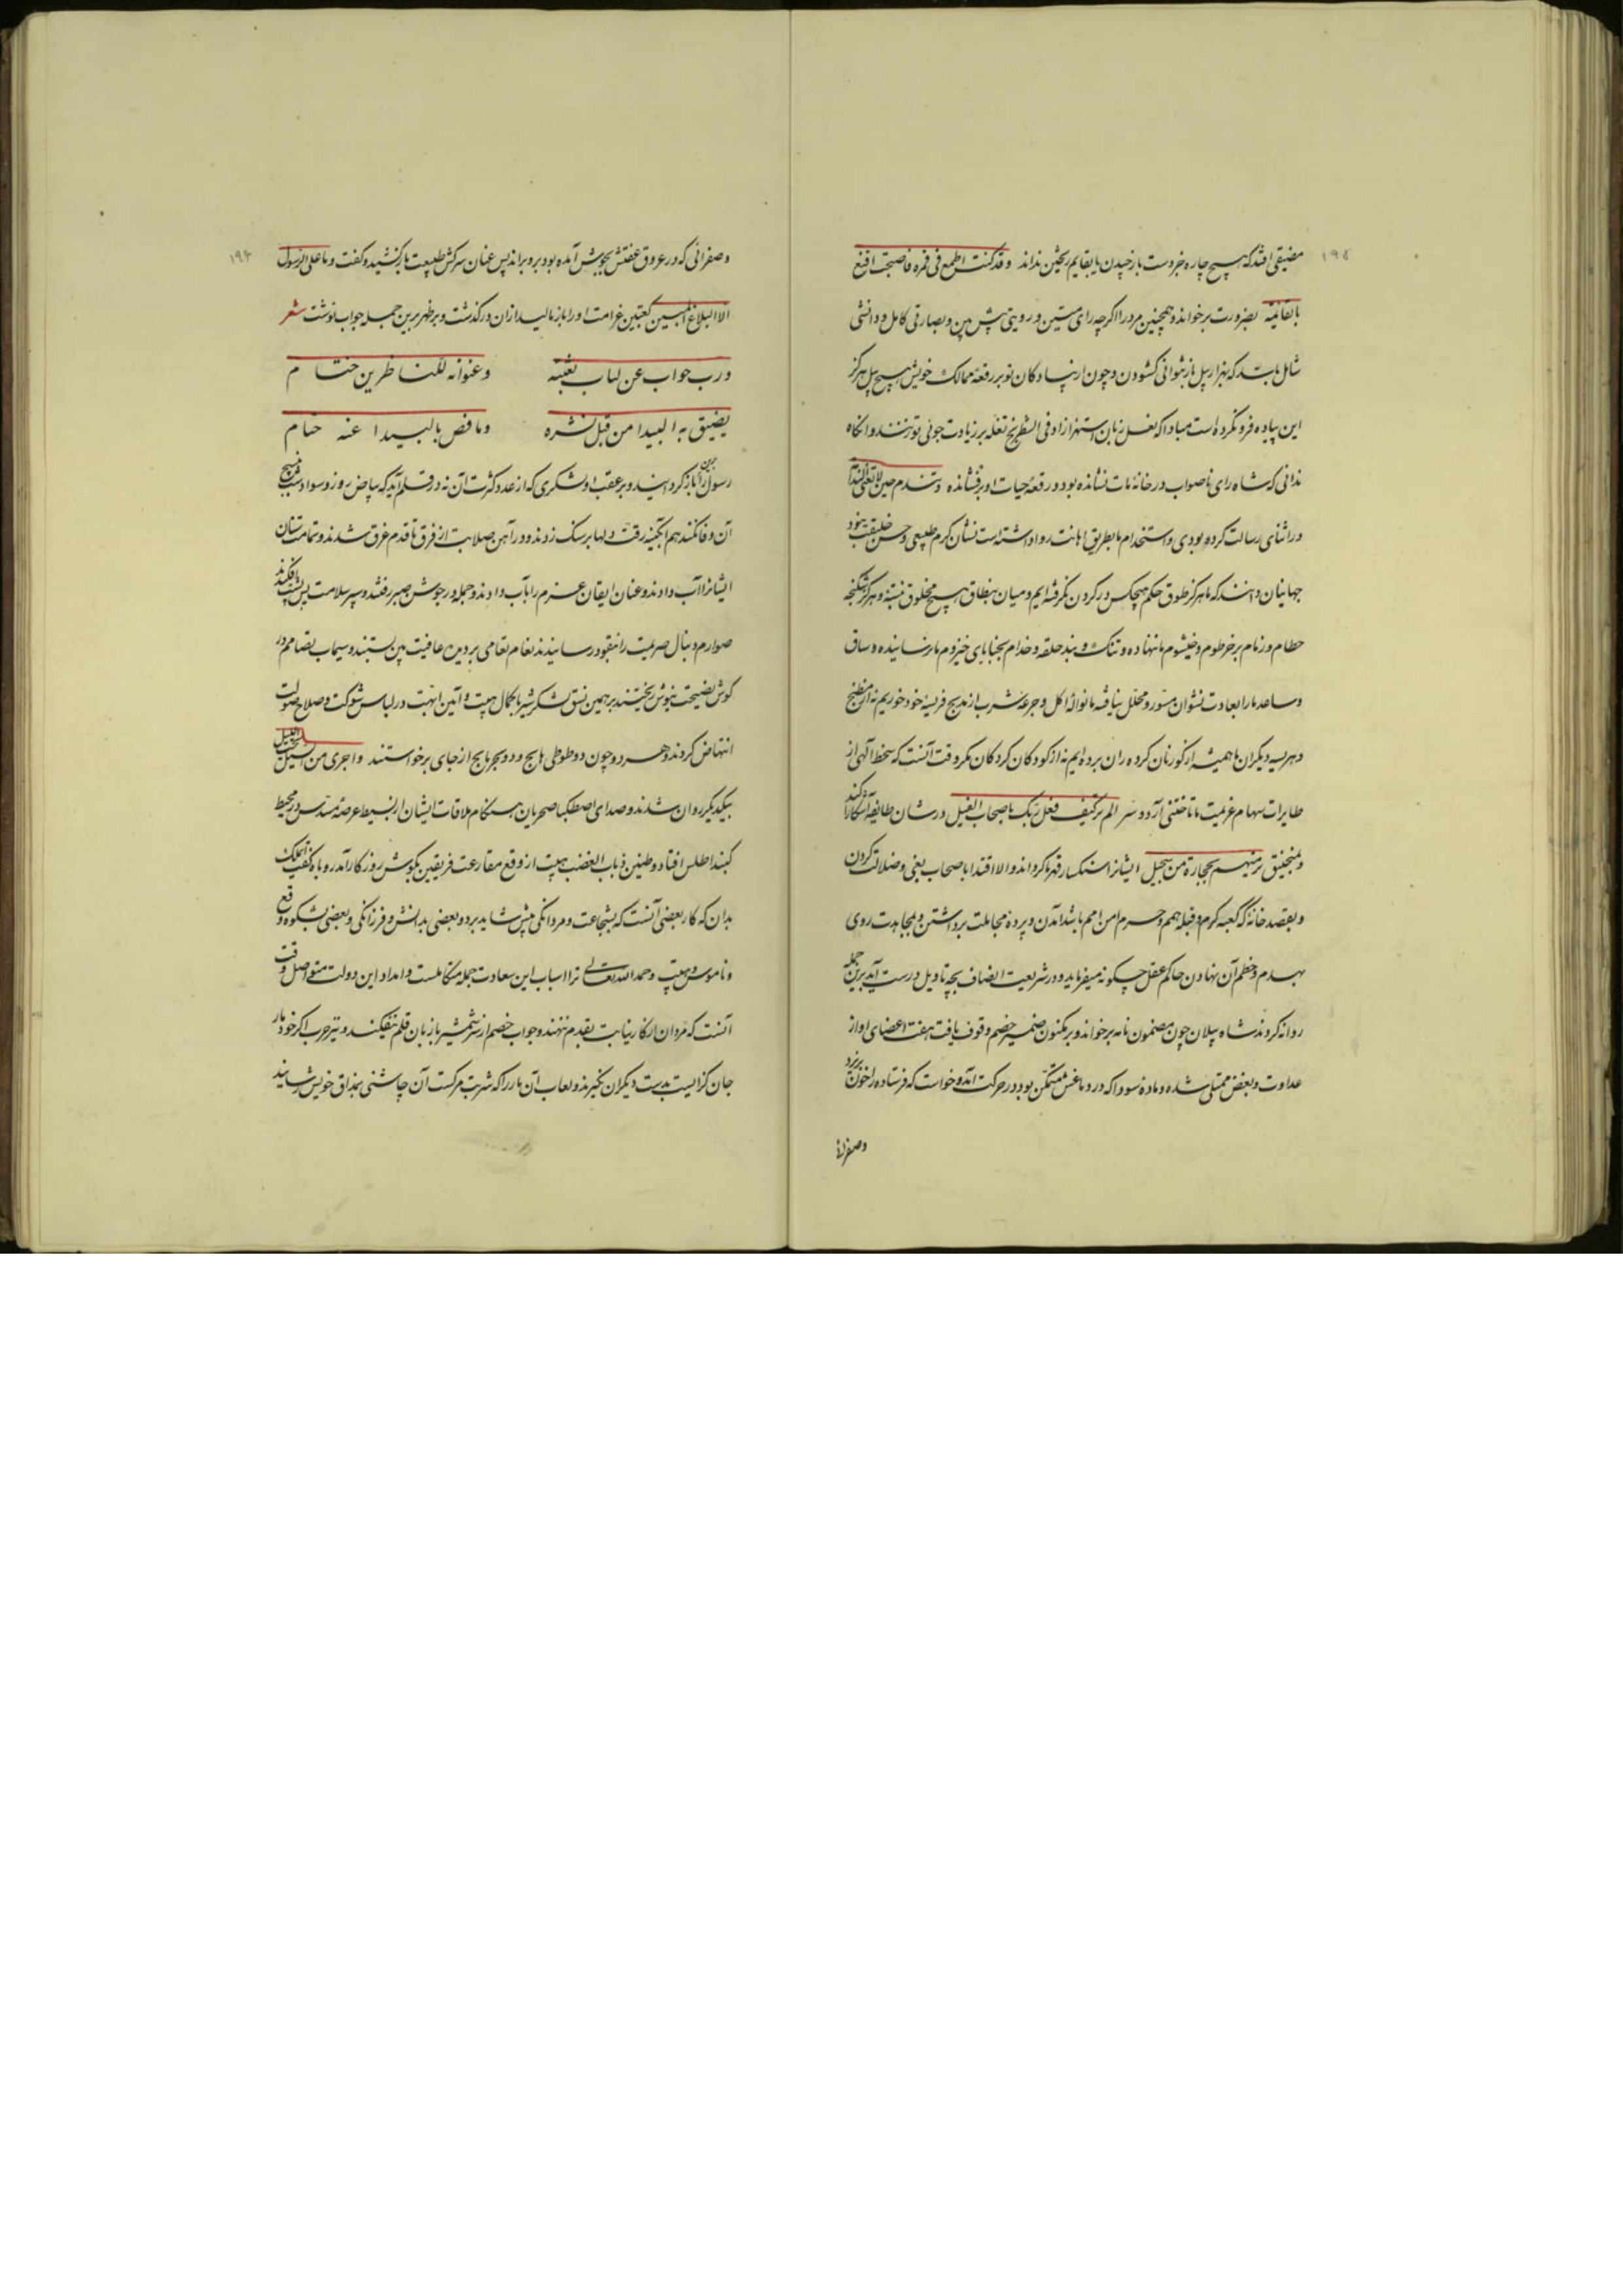 ۱۹۵
مضیقی افتد که هیچ چاره جز دست باز چیدن یا بقایم ریختن نداند وقد کنت اطمع فی قمره فاصبحت اقنع
بالقائمه بضرورت برخواند و همچنین مرد را اگرچه رای متین و رویتی پیش بین و بصارتی کامل و دانشی
شامل باشد که بهزار پیل باز نتوانی گشودن و چون از پیادگان تو بر رقعه ممالک خویش هیچ پیل هرگز
این پیاده فرو نکرده است مبادا که لعل زبان استهزا زاد فی الشطرنج بغله بر زیادت جوئی تو زنند و انگاه
ندانی که شاه رای ناصواب در خانه مات نشانده بود و رقعه حیات او برفشانده
در اثنای رسالت کرده بودی و استخدام ما بطریق اهانت روا داشته است نشان کرم طبیعی و حسن خلیقت بود
جهانیان دانند که ما هرگز طوق حکم هیچکس در گردن نگرفته ایم و میان بنطاق هیچ مخلوق نبسته و هرگز شکنجه
حطام و زمام بر خرطوم و خیشوم ما ننهاده و تنک و بند حلقه و خدام بجنبا پای خیزوم ما نرسانیده و ساق
و ساعد ما را بعادت نشوان مسور و مخلخل نیافته ما نواله اکل و جرعه شرب از مذبح فریسه خود خوریم نه از مطبخ
و هریسه دیگران ما همیشه از گور زنان گرده ران برده ایم نه از کودکان گردکان مگر وقت آنست که سخط الهی از
طایرات سهام عزیمت ما تاختنی آرد و سر الم تر کیف فعل ربک باصحاب الفیل در شان طایفه آشکارا کند
و منجنیق ترمیهم بحجارة من سجیل ایشانرا سنگسار قهر ما گرداند و الا اقتدا باصحاب بغی و ضلالت کردن
و بقصد خانه که کعبه کرم و قبله همم و حرم امن امم باشد آمدن و پرده مجاملت برداشتن و بمجاهدت روی
بهدم و حطم آن نهادن حاکم عقل چگونه میفرماید و در شریعت انصاف بچه تاویل درست آید برین جمله
روانه کردند شاه پیلان چون مضمون نامه برخواند و بر مکنون ضمیر خصم وقوف یافت هفت اعضای او از
عداوت و بغض ممتلی شده و ماده سودا که در دماغش متمکن بود در حرکت آمد و خواست که فرستاده را خون بریزد
وصفرائی
۱۹۴
وصفرائی که در عروق عفتش بجوش آمده بود برو براند پس عنان سرکش طبیعت باز کشید و گفت و ما علی الرسول
الا البلاغ المبین کعبتین غرامت او را باز مالید از آن درگذشت و بر ظهر برین جمله جواب نوشت شعر
ورب جواب عن کتاب بعثته وعنوانه للناظرین ختام
یضیق به البیدا من قبل نشره وما فض بالبیدا عنه ختام
رسول را باز گردانید و بر عقب او لشکری که از عدد کثرت آن نه در قلم آید که بیاض روز و سواد شب
آن وفا نکند هم آبگینه رقت دلها بر سنگ زدند و در آهن صلابت از فرق تا قدم غرق شدند و تمامت سنان
ایشانرا آب دادند و عنان ایقان عزم را باب دادند و جمله در جوشن صبر رفتند و سپر سلامت پس پشت افکندند
صوارم و نبال صریمت را نفوذ رسانیدند نغام تعامی بر دیده عافیت بین بستند و سیماب تصامم در
گوش نصیحت نیوش ریختند بر همین نسق لشکر شیر باکمال هیبت و آیین ابهت در لباس شوکت و صلاح صولت
انتهاض کردند و هر دو چون دو طوطی هایج و دو بحر مایج از جای برخواستند واجری من السیل
بیکدیگر روان شدند و صدای اصطکاک صحریان هنگام ملاقات ایشان از بسیط عرصه مسدس در محیط
گنبد اطلس افتاد و طنین ذباب الغضب هیبت از وقع مقارعت فریقین بگوش روزگار آمد روباه گفت ای ملک
بدان که کار بعضی آنست که بشجاعت و مردانگی پیش شاید برد و بعضی بدانش و فرزانگی و بعضی بشکوه و وقع
و ناموس هیبت و حمد الله تعالی ترا اسباب این سعادت جمله متکاملست و امداد این دولت متواصل وقت
آنست که مردان ار کار نیابت بقدم ننهند و جواب خصم از سر شمشیر با زبان قلم نفکند و تیر حرب اگر خود مار
جان گزاییست بدست دیگران نگیرند و لعاب آن مار را که شربت مرگست آن چاشنی بمذاق خویش رسانید